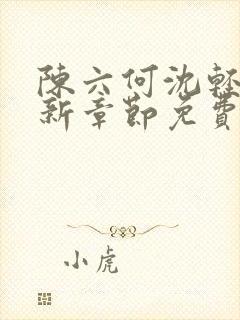 陳六何沈輕
新章節免費
小虎